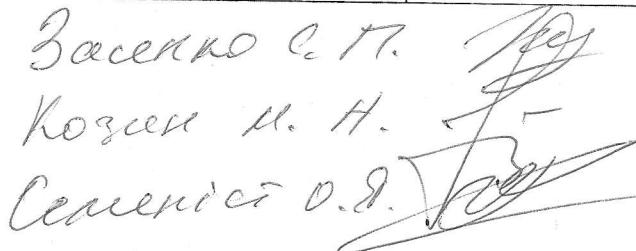 Засенко С. П.
Козин М. Н.
Семеніст О. Я.